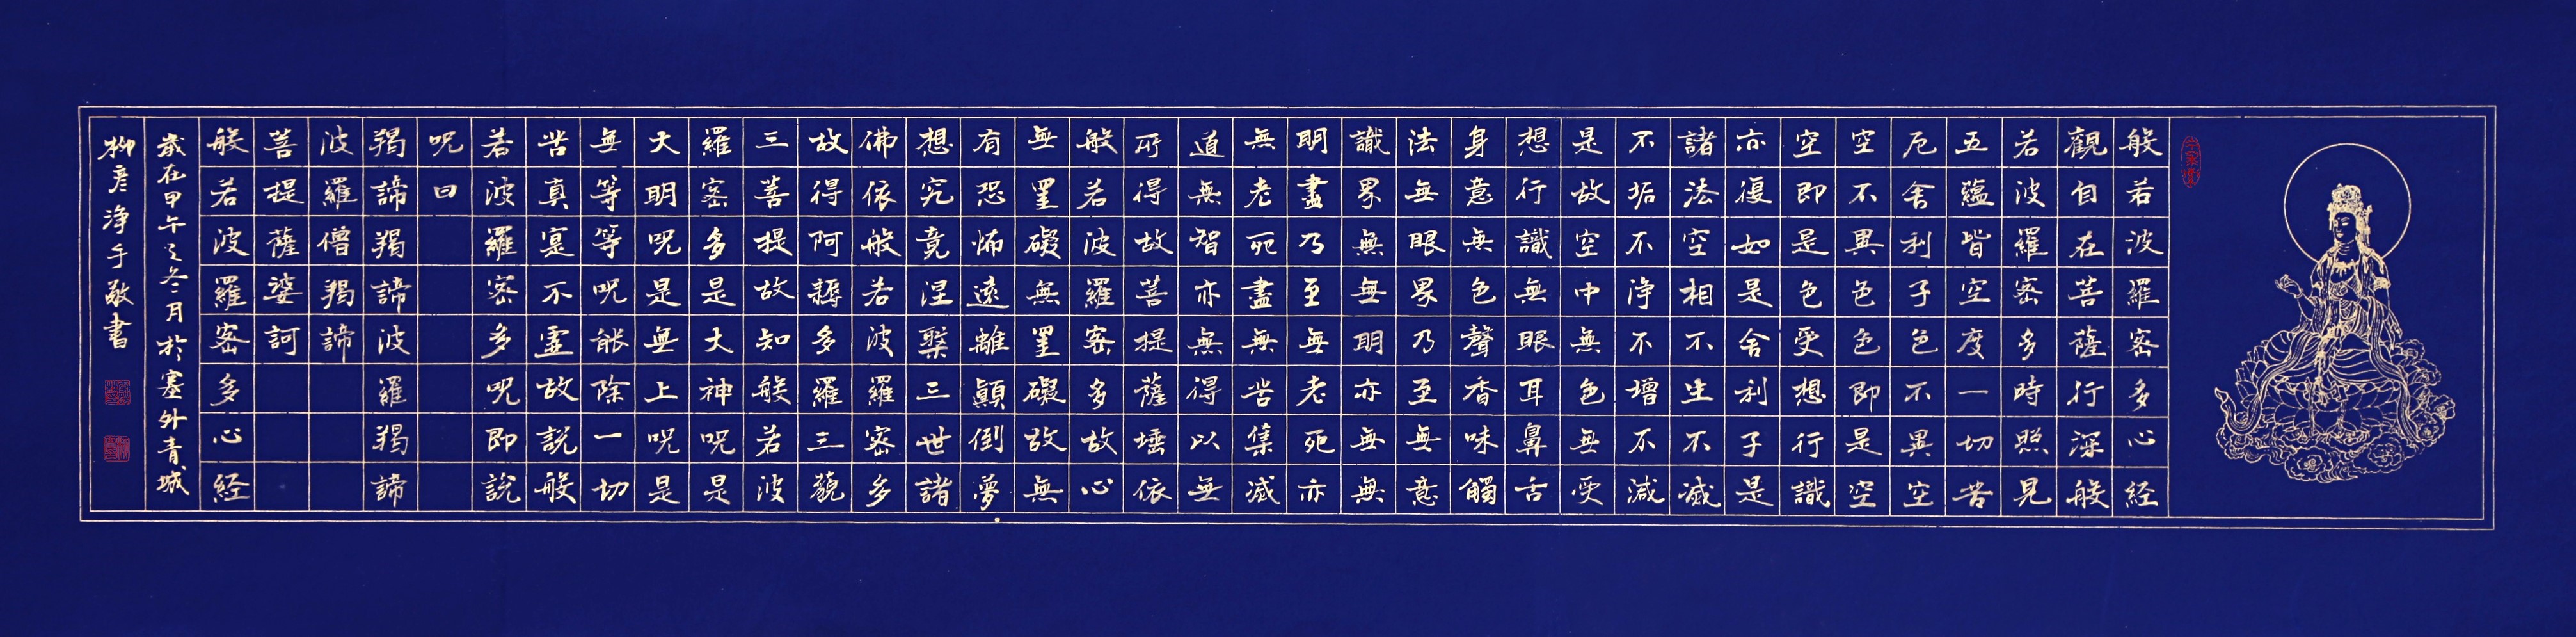 般若波羅密多心経
觀自在菩薩行深般
若波羅密多時照見
五蘊皆空度一切苦
厄舍利子色不異空
空不異色色即是空
空即是色受想行識
亦復如是舍利子是
諸法空相不生不滅
不垢不淨不增不減
是故空中無色無受
想行識無眼耳鼻舌
身意無色聲香味觸
法無眼界乃至無意
識界無無明亦無無
明盡乃至無老死亦
無老死盡無苦集滅
道無智亦無得以無
所得故菩提薩埵依
般若波羅密多故心
無罣礙無罣礙故無
有恐怖遠離顛倒夢
想究竟涅槃三世諸
佛依般若波羅密多
故得阿耨多羅三藐
三菩提故知般若波
羅密多是大神呪是
大明呪是無上呪是
無等等呪能除一切
苦真寔不虛故說般
若波羅密多呪即說
呪曰
羯諦羯諦波羅羯諦
波羅僧羯諦
菩提薩婆訶
般若波羅密多心経
歲在甲午之冬月於塞外青城
柳彦淨手敬書